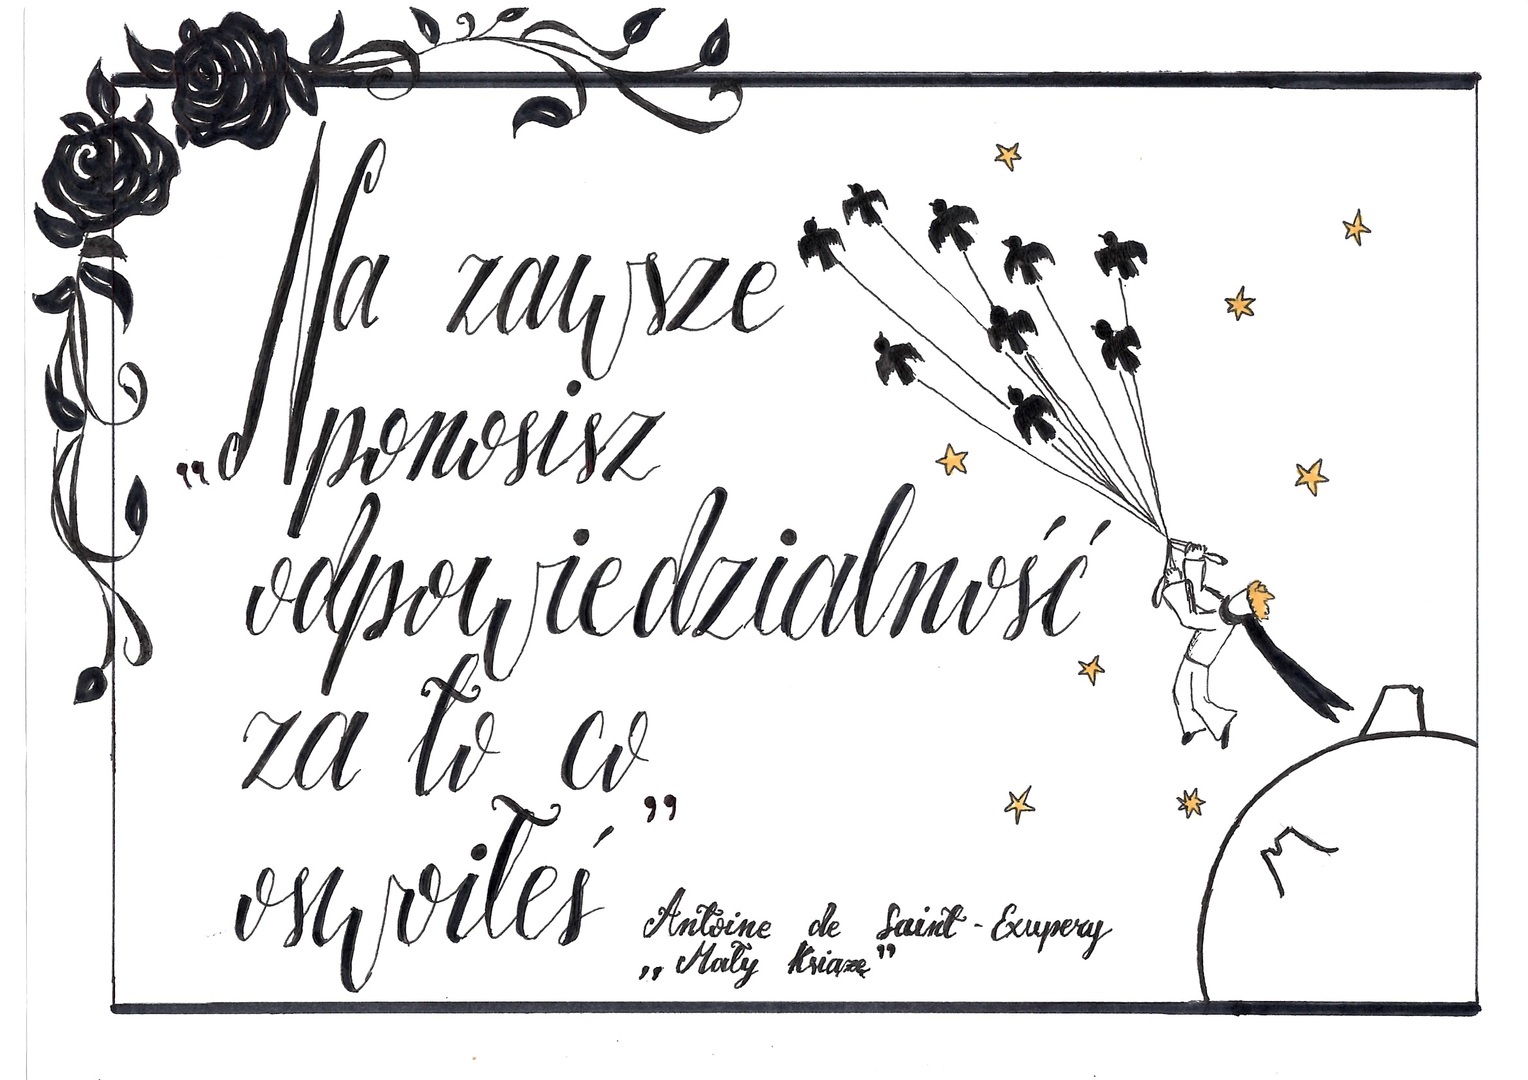 „Na zawsze
ponosisz
odpowiedzialność
za to co
oswoiłeś”
Antoine de Saint-Exupery
„Mały Ksiaze”